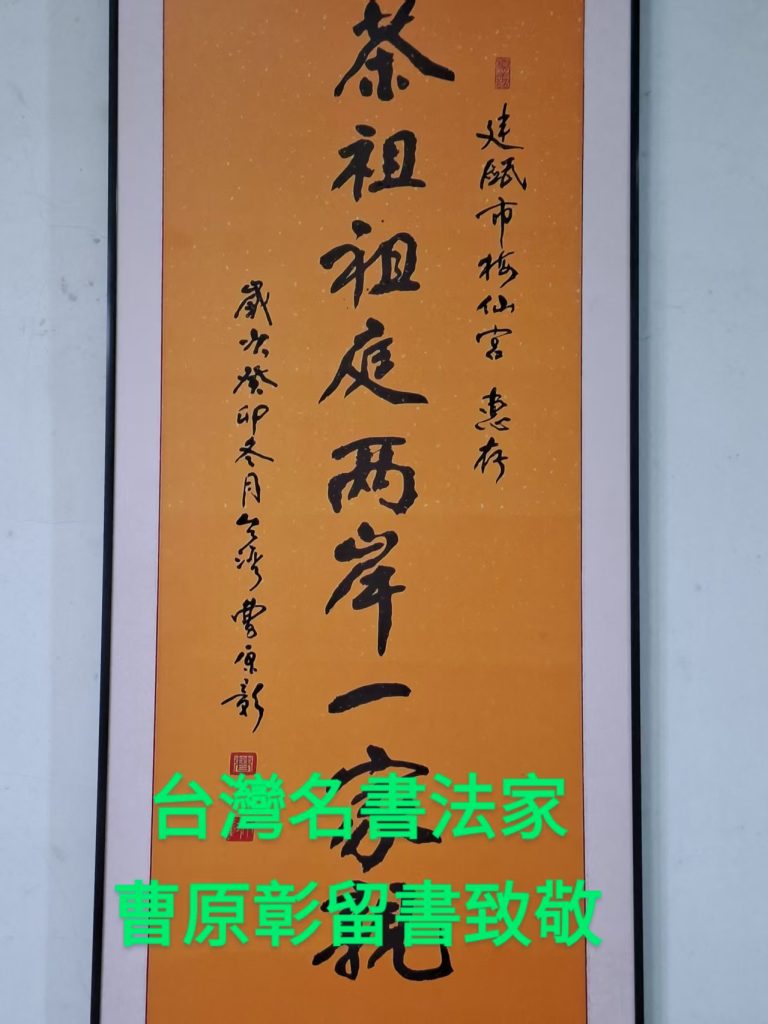 建瓯市梅仙宫 惠存
茶祖祖庭两岸一家親
歲次癸卯冬月台湾曹原彰
台灣名書法家
曹原彰留書致敬